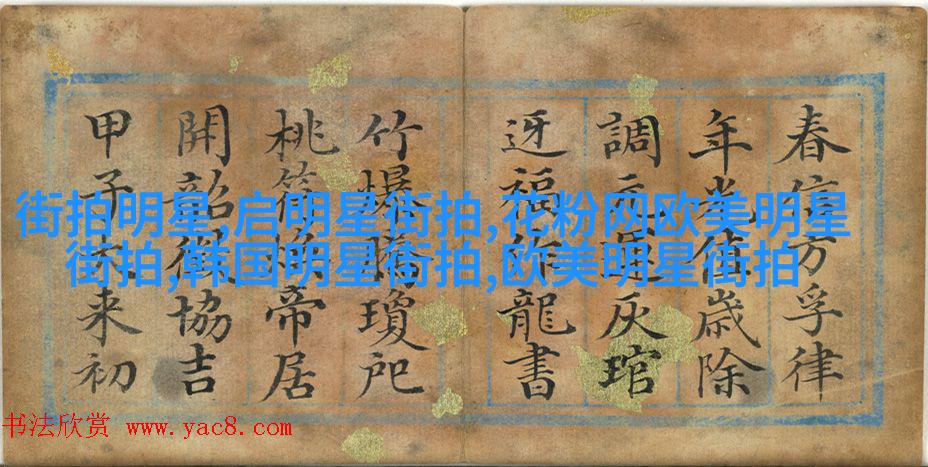 春信方孚律
年光值歲除
調元灰琯
迓福龍書
竹爆騰瓊戺
桃符換帝居
開韶協吉
甲子来初
街拍明星,启明星街拍,花粉网欧美明星
街拍,韩国明星街拍,欧美明星街拍
书法欣赏 www.yac8.com